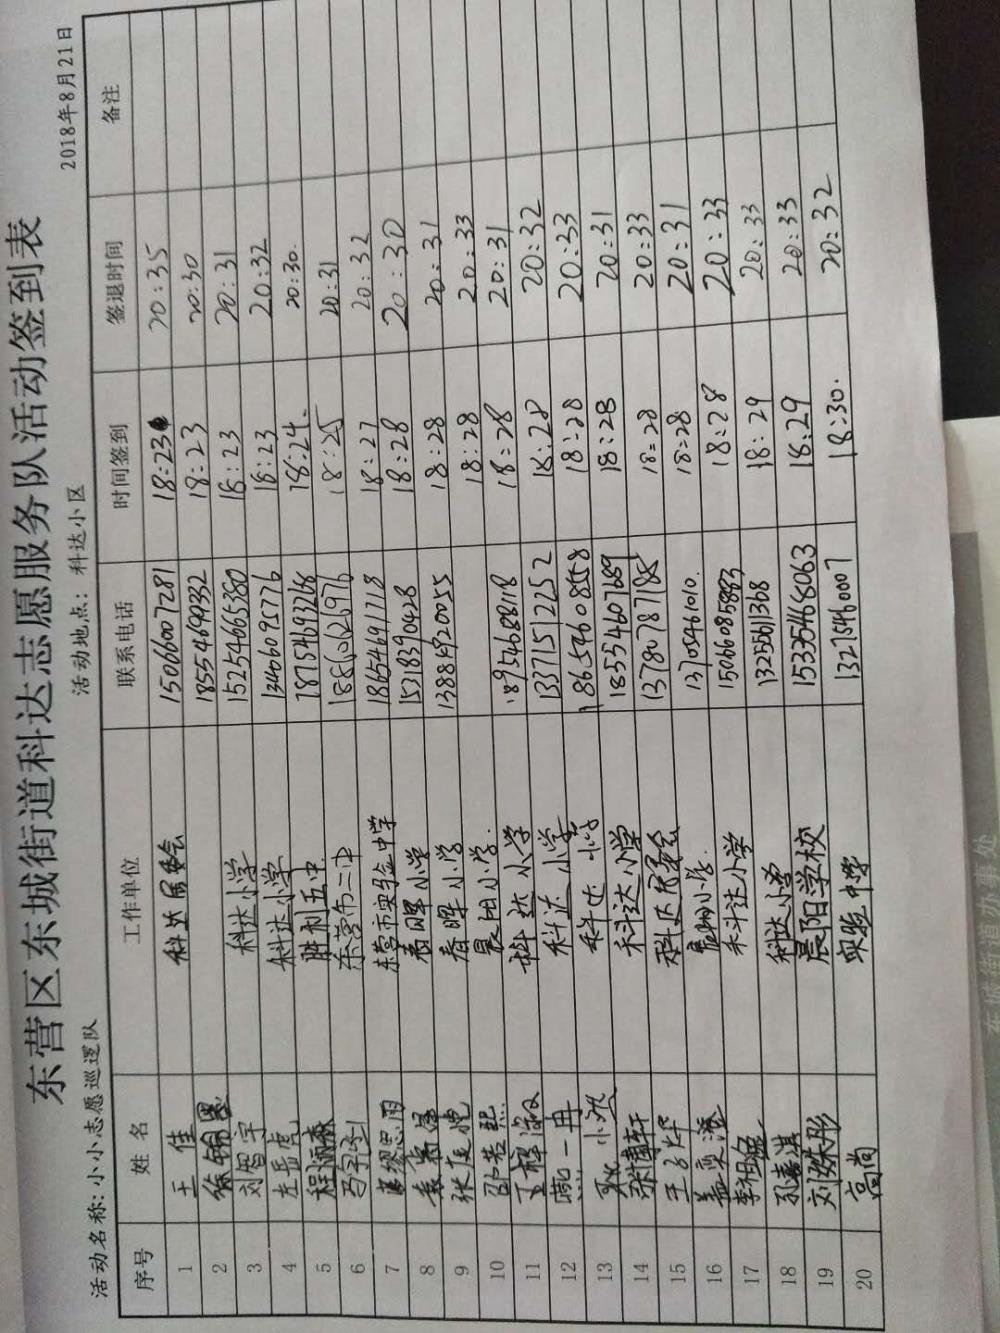 东营区东城街道科达志愿服务队活动签到表
活动名称：小小志愿巡逻队 活动地点：科达小区 2018年8月21日
序号 姓名 工作单位 联系电话 时间签到 签退时间 备注
1 王佳 科达居委会 15066007281 18:23 20:35
2 18554699332 18:23 20:30
3 刘智宇 科达小学 15254665380 18:23 20:31
4 左岳虎 科达小学 13406092776 18:23 20:32
5 程 胜利五中 18754693268 18:24. 20:30.
6 东营市二中 18:25 20:31
7 东营市实验中学 18654691718 18:27 20:32
8 春晖小学 15218390428 18:28 20:30
9 春晖小学 13884920055 18:28 20:31
10 晨阳小学. 18:28 20:33
11 科达小学 18954688118 18:28 20:31
12 一冉 科达小学 13371512252 18:28 20:32
13 科达小学 18654608558 18:28 20:33
14 科达小学 18554607689 18:28 20:31
15 科达居委会 13780787185 18:28 20:33
16 小学. 13705461010. 18:28 20:31
17 科达小学 15066085983 18:28 20:33
18 科达小学 13256611368 18:29 20:33
19 刘姝彤 晨阳学校 15335468063 18:29 20:33
20 高尚 实验中学 13271546007 18:30. 20:32
东城街道办事处